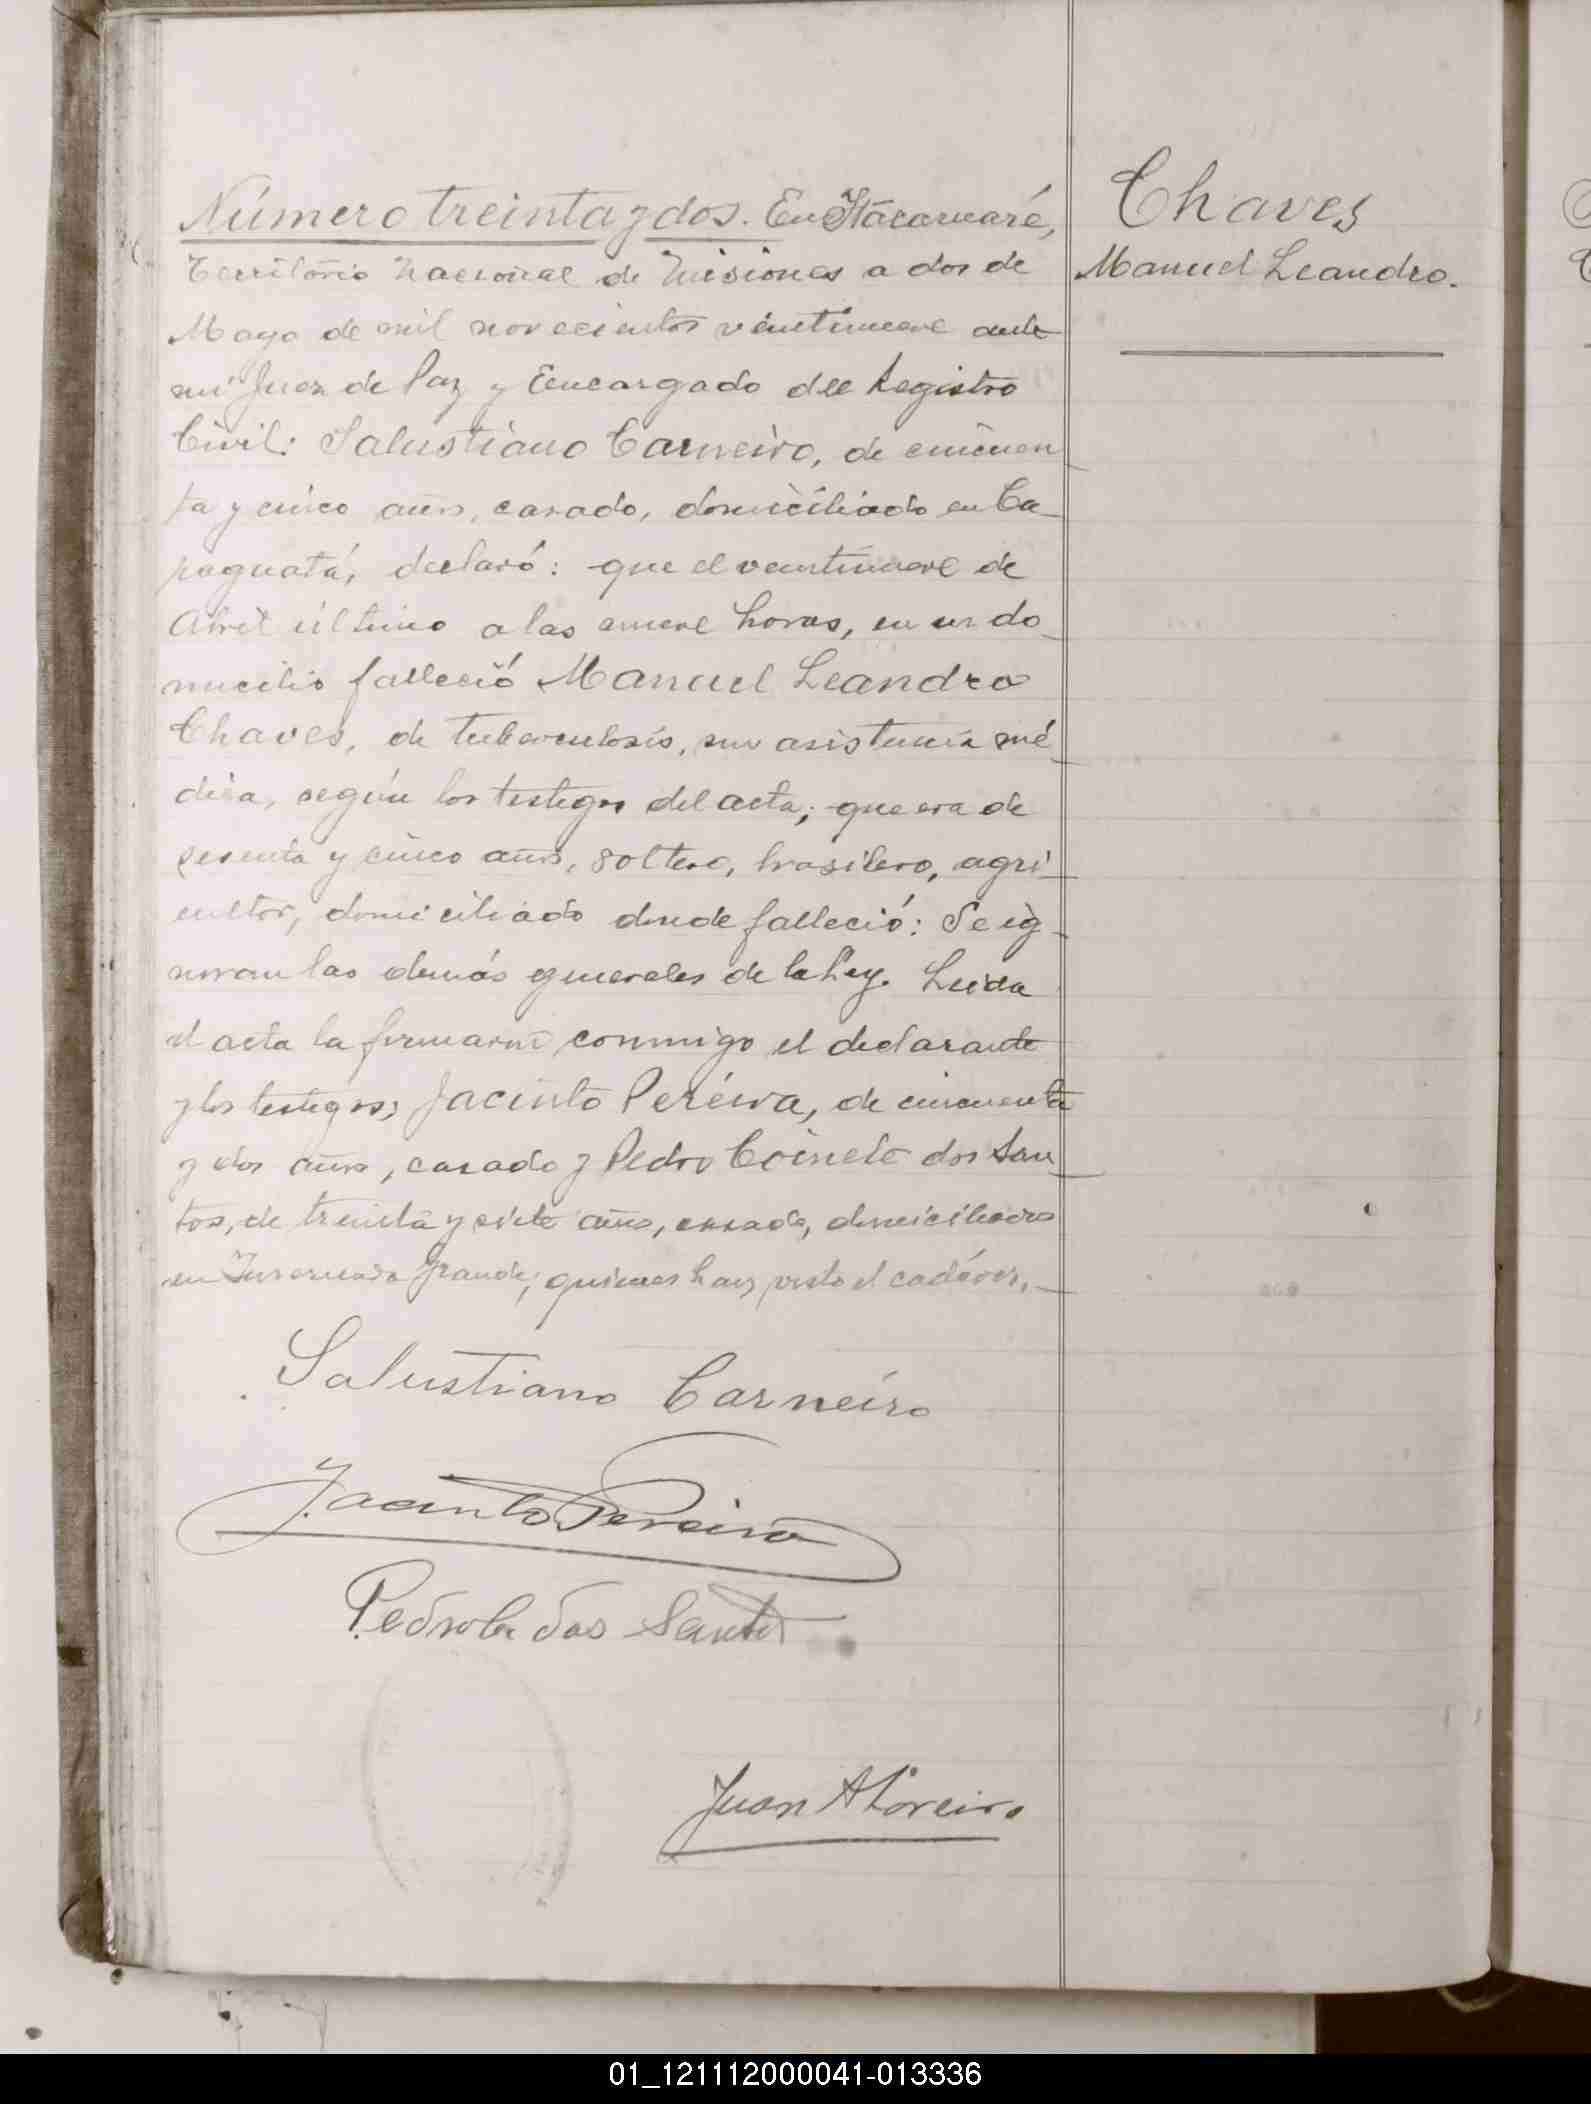 Número treinta y dos. En Itacaruaré,
Territorio Nacional de Misiones a dos de
Mayo de mil novecientos veintinueve ante
mí Juez de Paz y Encargado del Registro
Civil: Salustiano Carneiro, de cincuen
ta y cinco años, casado, domiciliado en Ca
paguatá, declaró: que el veintinueve de
Abril último a las nueve horas, en su do
micilio falleció Manuel Leandro
Chaves, de tuberculosis, sin asistencia mé
dica, según los testigos del acta; que era de
sesenta y cinco años, soltero, brasilero, agri
cultor, domiciliado donde falleció: Se ig
noran las demás generales de la Ley. Leida
el acta la firmaron conmigo el declarante
y los testigos; Jacinto Pereira, de cincuenta
y dos años, casado y Pedro dos San
tos, de treinta y siete años, casado, domiciliados
en Grande; quienes han visto el cadáver.
Salustiano Carneiro
Jacinto Pereira
Pedro dos Santos
Juan A
Chaves
Manuel Leandro.
01_121112000041-013336